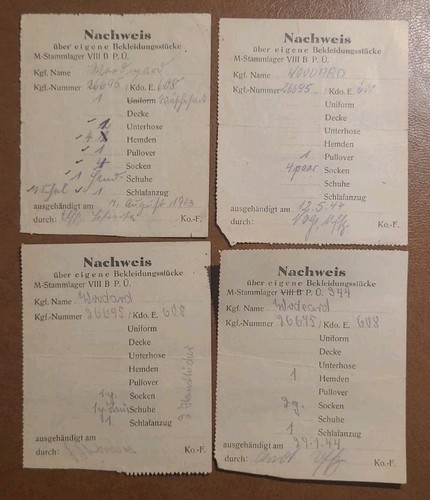 Nachweis
über eigene Bekleidungsstücke
M-Stammlager VIII B P. Ü.
Kgf. Name
Kgf.-Nummer 26695 / Kdo. E. 608
1 Uniform
Decke
1 Unterhose
4 Hemden
1 Pullover
4 Socken
1 Schuhe
1 Schlafanzug
ausgehändigt am August 1943
durch: Ko.-F.
Nachweis
über eigene Bekleidungsstücke
M-Stammlager VIII B P. Ü.
Kgf. Name WOODARD
Kgf.-Nummer 26695 / Kdo. E. 608
Uniform
Decke
Unterhose
Hemden
1 Pullover
4 paar Socken
Schuhe
Schlafanzug
ausgehändigt am 12.5.44
durch: Ko.-F.
Nachweis
über eigene Bekleidungsstücke
M-Stammlager VIII B P. Ü.
Kgf. Name Woodard
Kgf.-Nummer 26695 / Kdo. E. 608
Uniform
Decke
Unterhose
Hemden
Pullover
Socken
Schuhe
1 Schlafanzug
ausgehändigt am
durch: Ko.-F.
Nachweis
über eigene Bekleidungsstücke
M-Stammlager VIII B P. Ü. 344
Kgf. Name
Kgf.-Nummer 26695 / Kdo. E. 608
Uniform
Decke
Unterhose
1 Hemden
Pullover
Socken
Schuhe
1 Schlafanzug
ausgehändigt am 29.1.44
durch: Ko.-F.